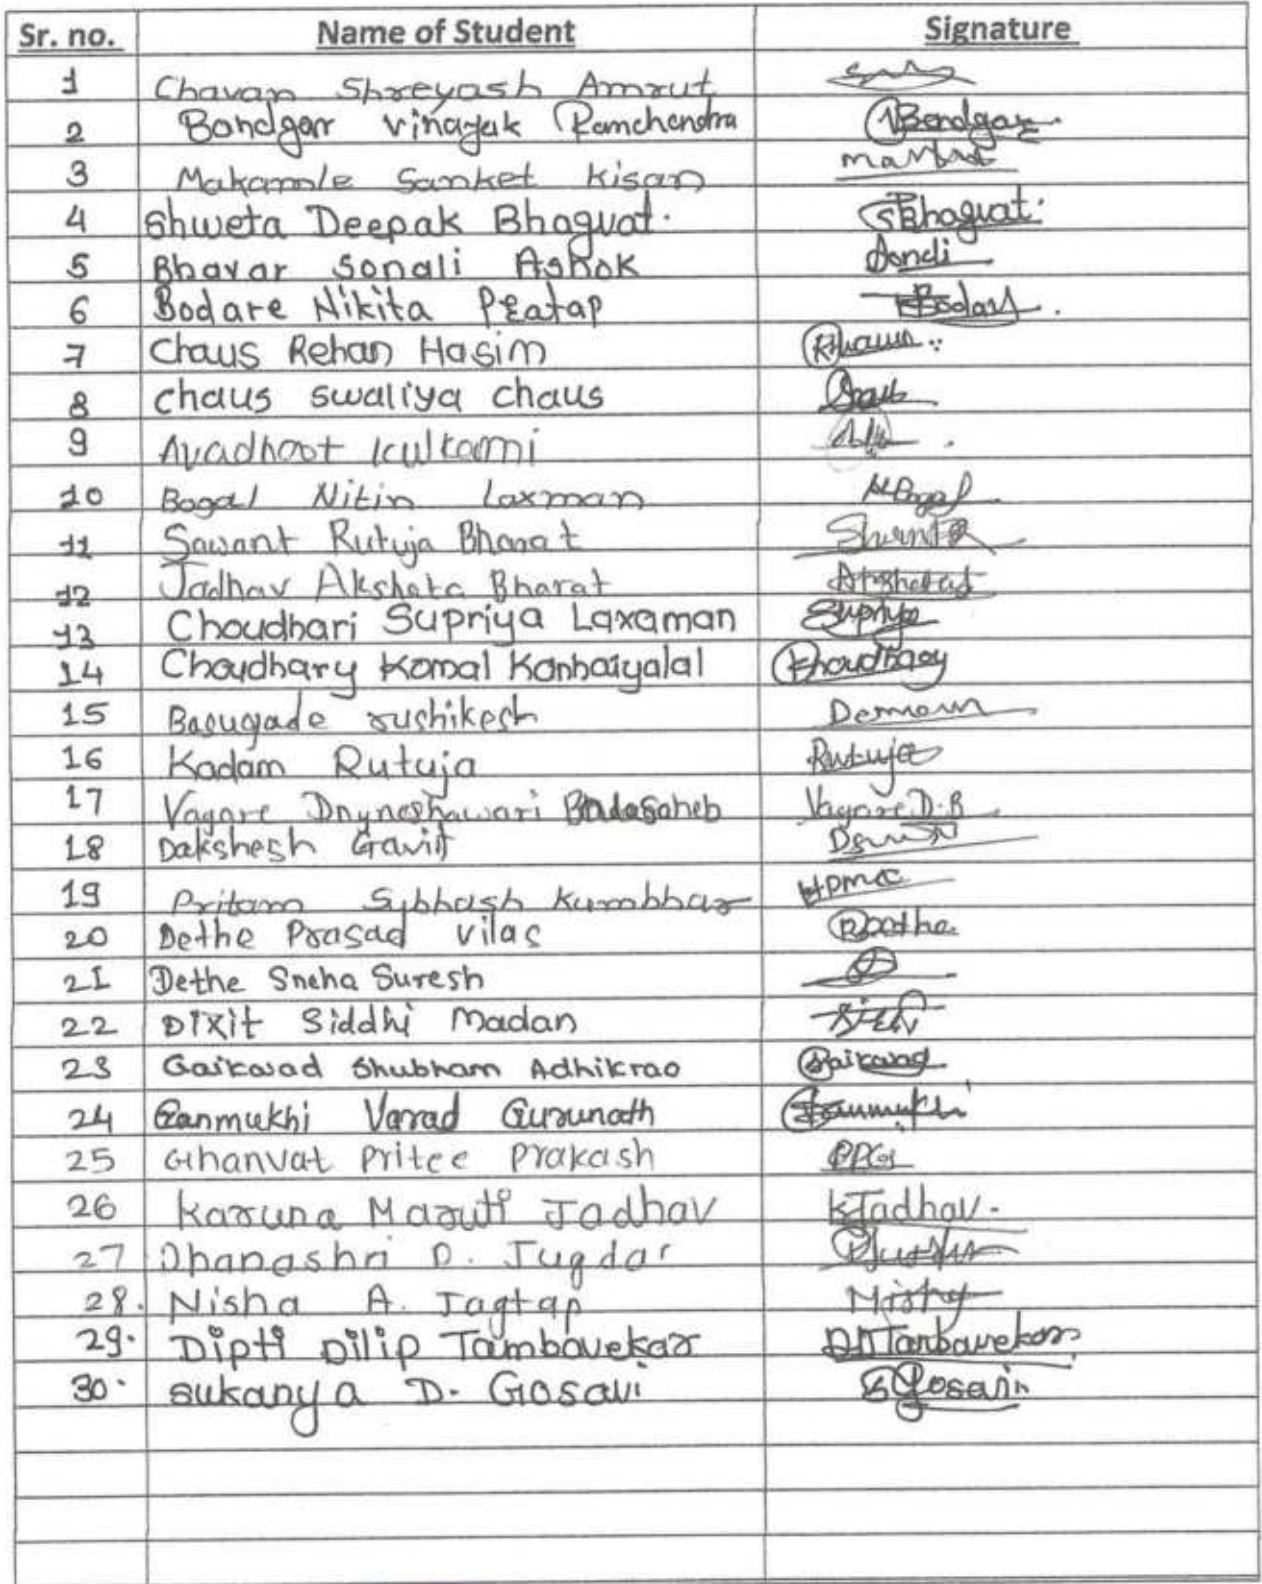 Sr. no. Name of Student Signature
1 Chavan Shreyash Amrut
2 Bandgar Vinayak Ramchandra Bandgar.
3 Makamle Sanket Kisan
4 Shweta Deepak Bhagvat. SBhagvat.
5 Bhavar Sonali Ashok Sonali
6 Bodare Nikita Pratap Bodare.
7 Chaus Rehan Hasim
8 chaus swaliya chaus
9 Avadhoot Kulkarni
10 Bagal Nitin Laxman NBagal
11 Sawant Rutuja Bharat
12 Jadhav Akshata Bharat
13 Choudhari Supriya Laxaman Supriya
14 Choudhary Komal Kanhaiyalal Khoudhary
15 Basugade rushikesh
16 Kadam Rutuja Rutuja
17 Vagare Dnyneshawari Badasaheb Vagare D.B
18 Dakshesh Gavit
19 Pritam Subhash Kumbhar
20 Dethe Prasad Vilas
21 Dethe Sneha Suresh
22 Dixit Siddhi Madan
23 Gaikwad Shubham Adhikrao Gaikwad
24 Ganmukhi Varad Gurunath Ganmukhi
25 Ghanvat Pritee Prakash PPG
26 Karuna Maruti Jadhav KJadhav.
27 Dhanashri D. Jugdar
28. Nisha A. Jagtap Nisha
29. Dipti Dilip Tambavekar DDTambavekar
30. Sukanya D. Gosavi SGosavi